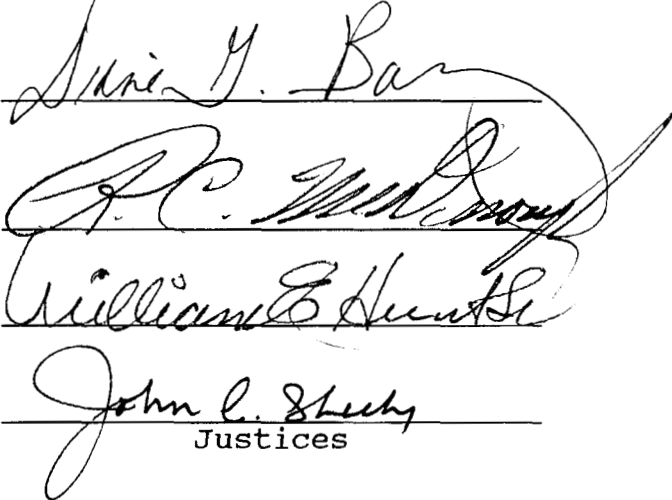 G. Ba
R. C. McDonough
William E Hunt Sr
John C. Sheehy
Justices